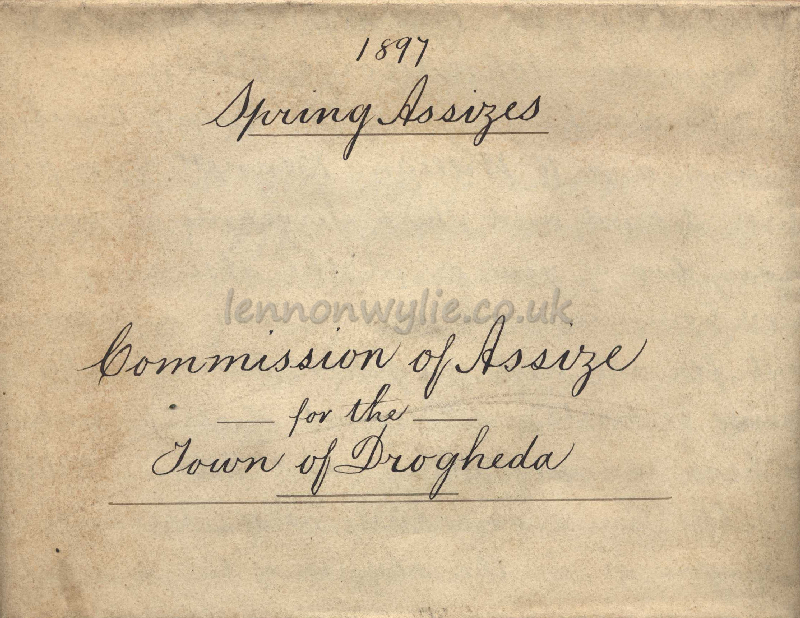 1897
Spring Assizes
lennonwylie.co.uk
Commission of Assize
for the
Town of Drogheda